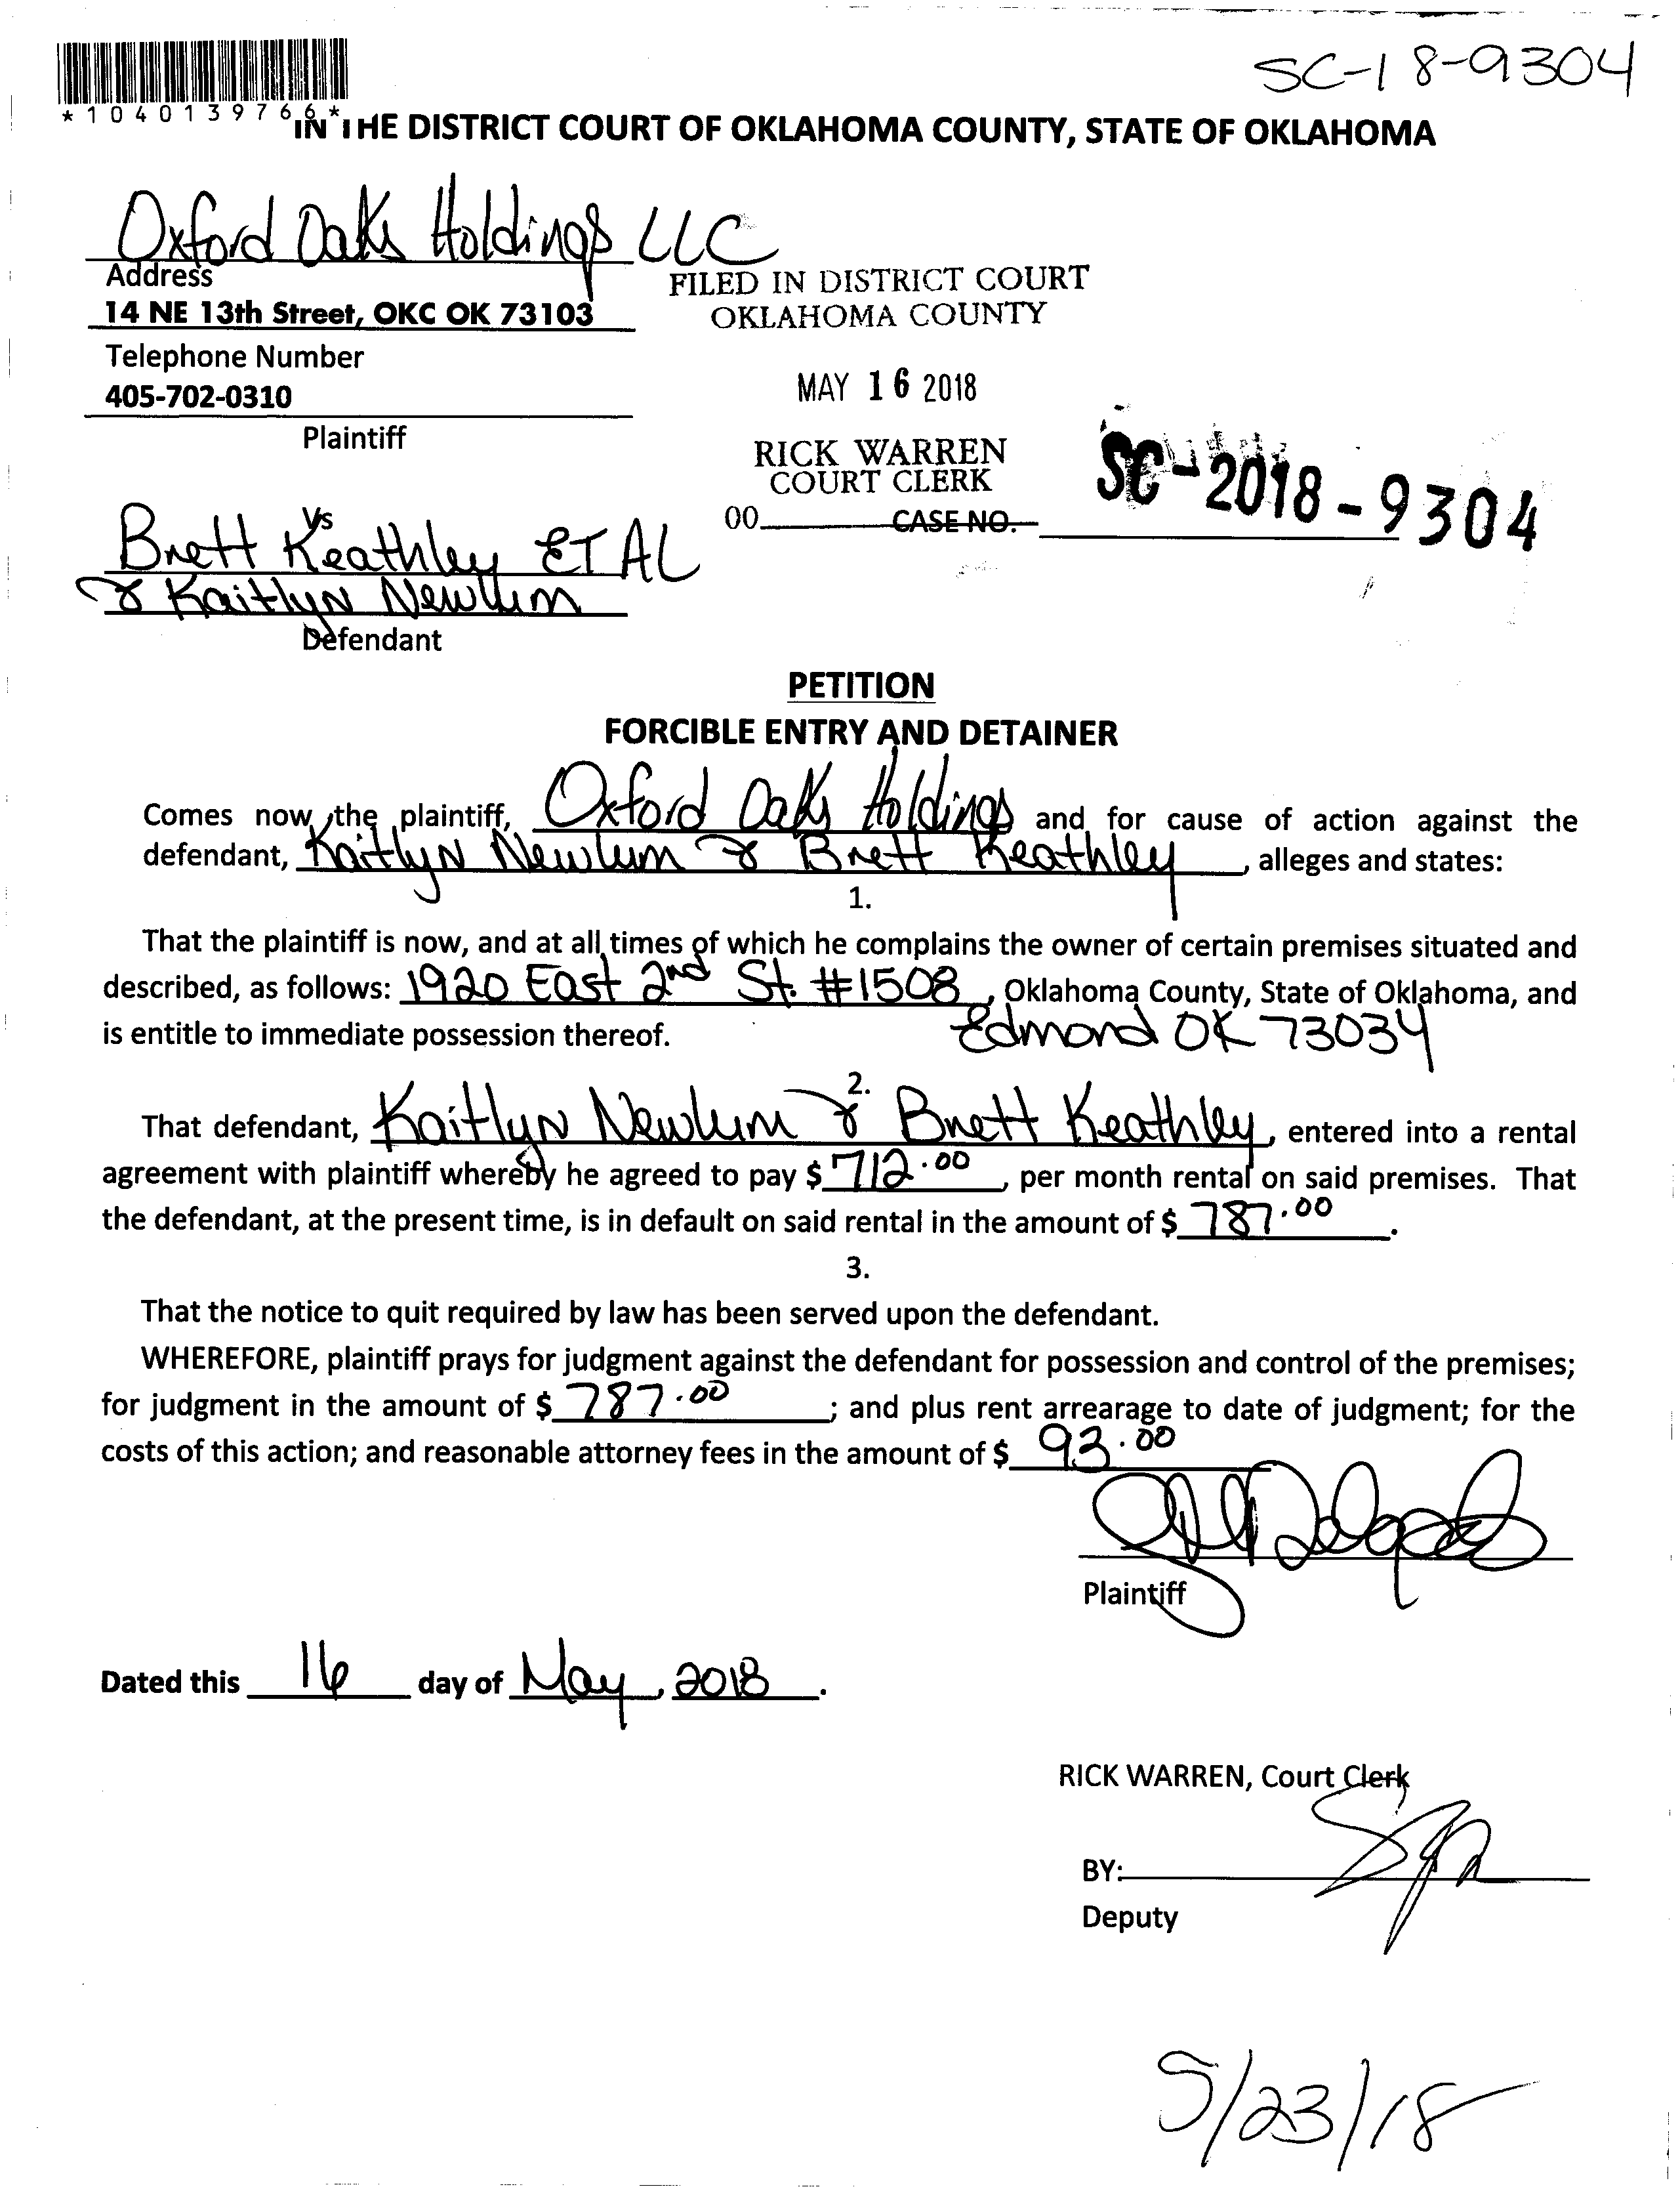 SC-18-9304
*1040139766*
IN THE DISTRICT COURT OF OKLAHOMA COUNTY, STATE OF OKLAHOMA
Oxford Oaks Holdings LLC
Address
14 NE 13th Street, OKC OK 73103
Telephone Number
405-702-0310
Plaintiff
FILED IN DISTRICT COURT
OKLAHOMA COUNTY
MAY 16 2018
RICK WARREN
COURT CLERK
00
CASE NO.
SC-2018-9304
Vs
Brett Keathley ET AL
& Kaitlyn Newlum
Defendant
PETITION
FORCIBLE ENTRY AND DETAINER
Comes now the plaintiff, Oxford Oaks Holdings and for cause of action against the
defendant, Kaitlyn Newlum & Brett Keathley, alleges and states:
1.
That the plaintiff is now, and at all times of which he complains the owner of certain premises situated and
described, as follows: 1920 East 2nd St. #1508, Oklahoma County, State of Oklahoma, and
is entitle to immediate possession thereof. Edmond OK 73034
2.
That defendant, Kaitlyn Newlum & Brett Keathley, entered into a rental
agreement with plaintiff whereby he agreed to pay $ 712.00, per month rental on said premises. That
the defendant, at the present time, is in default on said rental in the amount of $ 787.00.
3.
That the notice to quit required by law has been served upon the defendant.
WHEREFORE, plaintiff prays for judgment against the defendant for possession and control of the premises;
for judgment in the amount of $ 787.00; and plus rent arrearage to date of judgment; for the
costs of this action; and reasonable attorney fees in the amount of $ 93.00
Plaintiff
Dated this 16 day of May, 2018.
RICK WARREN, Court Clerk
BY:
Deputy
5/23/18